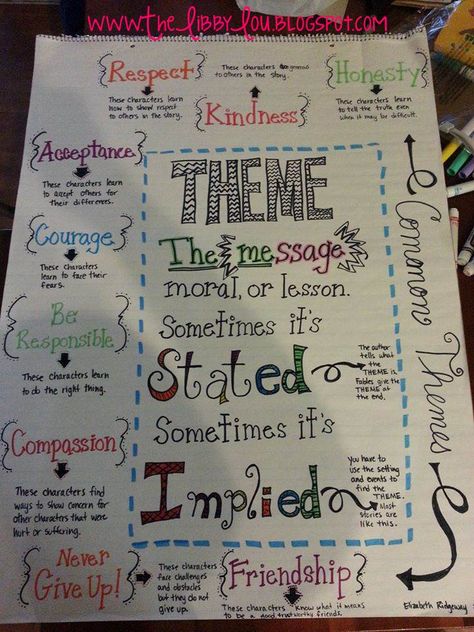 www.thelibbylou.blogspot.com
Respect
These characters learn
how to show respect
to others in the story.
These characters
to others in the story.
Kindness
Honasty
These characters learn
to tell the truth even
when it may be difficult.
Acceptance
These characters learn
to accept others for
their differences.
Courage
These characters
learn to face their
fears.
Be
Responsible
These characters learn
to do the right thing.
Compassion
These characters find
ways to show concern for
other characters that were
hurt or suffering.
Never
Give Up!
These characters
face challenges
and obstacles
but they do not
give up.
Friendship
These characters know what it means
to be a good trustworthy friends.
THEME
The message
moral, or lesson.
Sometimes it's
Stated
The author
tells what
the
THEME is.
Fables give the
THEME at
the end.
Sometimes it's
Implied
You have to
use the setting
and events to
find the
THEME.
Most
stories are
like this.
Comamon Themes
Elizabeth Ridgeway